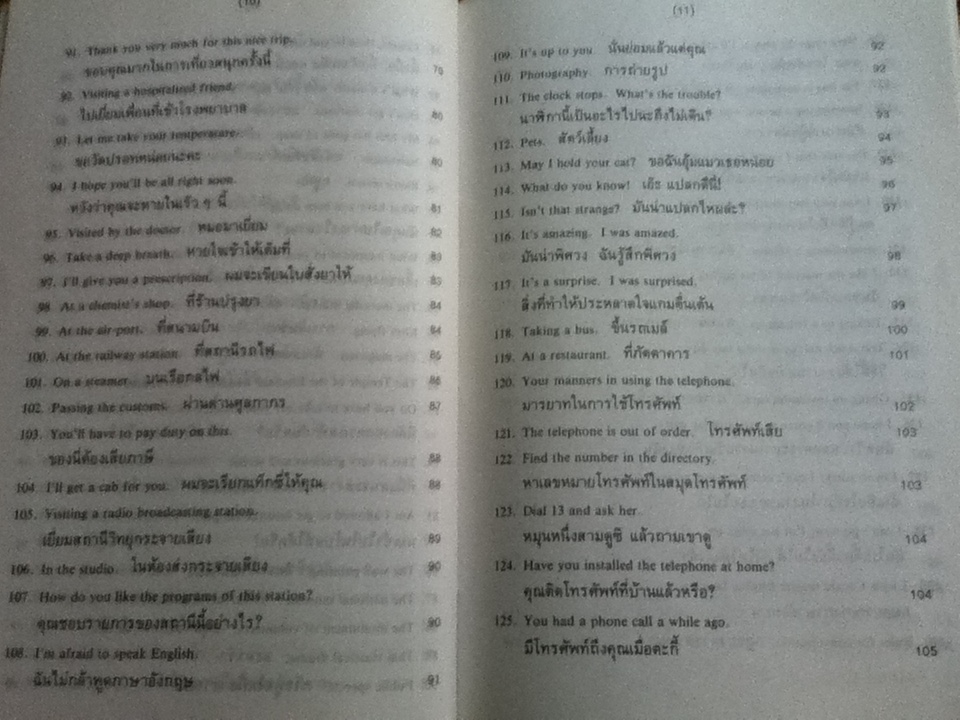 (10)
91. Thank you very much for this nice trip.
ขอบคุณมากในการเที่ยวสนุกครั้งนี้ 79
92. Visiting a hospitalized friend.
ไปเยี่ยมเพื่อนที่เข้าโรงพยาบาล 80
93. Let me take your temperature.
ขอวัดปรอทหน่อยนะคะ 80
94. I hope you'll be all right soon.
หวังว่าคุณจะหายในเร็ว ๆ นี้ 81
95. Visited by the doctor. หมอมาเยี่ยม 82
96. Take a deep breath. หายใจเข้าให้เต็มที่ 83
97. I'll give you a prescription. ผมจะเขียนใบสั่งยาให้ 83
98. At a chemist's shop. ที่ร้านปรุงยา 84
99. At the air-port. ที่สนามบิน 84
100. At the railway station. ที่สถานีรถไฟ 85
101. On a steamer. บนเรือกลไฟ 86
102. Passing the customs. ผ่านด่านศุลกากร 87
103. You'll have to pay duty on this.
ของนี่ต้องเสียภาษี 88
104. I'll get a cab for you. ผมจะเรียกแท็กซี่ให้คุณ 88
105. Visiting a radio broadcasting station.
เยี่ยมสถานีวิทยุกระจายเสียง 89
106. In the studio. ในห้องส่งกระจายเสียง 90
107. How do you like the programs of this station?
คุณชอบรายการของสถานีนี้อย่างไร? 90
108. I'm afraid to speak English.
ฉันไม่กล้าพูดภาษาอังกฤษ 91
(11)
109. It's up to you. นั่นย่อมแล้วแต่คุณ 92
110. Photography. การถ่ายรูป 92
111. The clock stops. What's the trouble?
นาฬิกานี้เป็นอะไรไปนะถึงไม่เดิน? 93
112. Pets. สัตว์เลี้ยง 94
113. May I hold your cat? ขอฉันอุ้มแมวเธอหน่อย 95
114. What do you know! เอ๊ะ แปลกดีนี่! 96
115. Isn't that strange? มันน่าแปลกไหมล่ะ? 97
116. It's amazing. I was amazed.
มันน่าพิศวง ฉันรู้สึกพิศวง 98
117. It's a surprise. I was surprised.
สิ่งที่ทำให้ประหลาดใจแกมตื่นเต้น 99
118. Taking a bus. ขึ้นรถเมล์ 100
119. At a restaurant. ที่ภัตตาคาร 101
120. Your manners in using the telephone.
มารยาทในการใช้โทรศัพท์ 102
121. The telephone is out of order. โทรศัพท์เสีย 103
122. Find the number in the directory.
หาเลขหมายโทรศัพท์ในสมุดโทรศัพท์ 103
123. Dial 13 and ask her.
หมุนหนึ่งสามดูซิ แล้วถามเขาดู 104
124. Have you installed the telephone at home?
คุณติดโทรศัพท์ที่บ้านแล้วหรือ? 104
125. You had a phone call a while ago.
มีโทรศัพท์ถึงคุณเมื่อตะกี้ 105